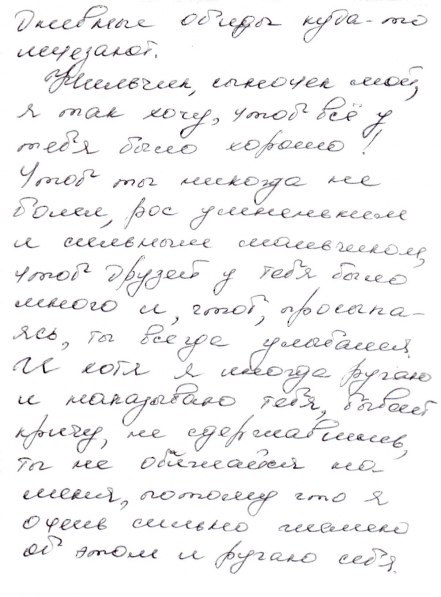 Дневные обиды куда-то
исчезают.
Умильчик, сыночек мой,
я так хочу, чтоб всё у
тебя было хорошо!
Чтоб ты никогда не
болел, рос умненьким
и сильным мальчиком,
чтоб друзей у тебя было
много и, чтоб, просыпа-
ясь, ты всегда улыбался.
И хотя я иногда ругаю
и наказываю тебя, бывает
кричу, не сдержавшись,
ты не обижайся на
меня, потому что я
очень сильно жалею
об этом и ругаю себя.